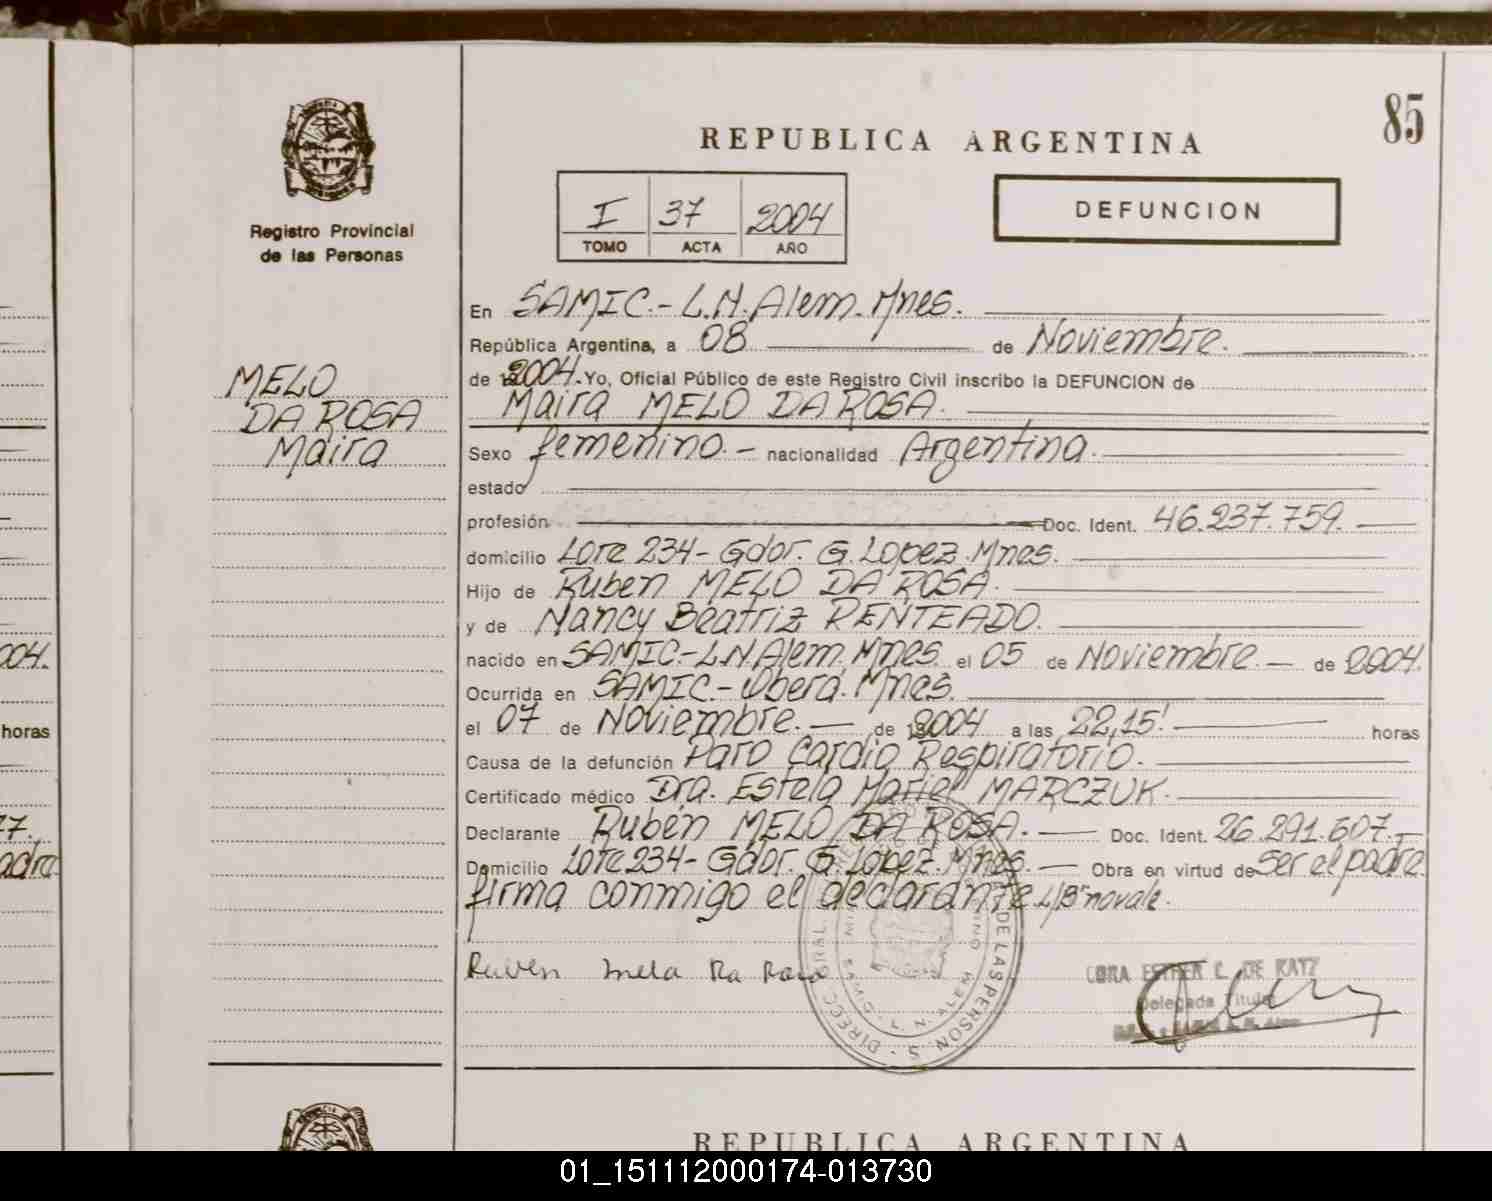 85
REPUBLICA ARGENTINA
I 37 2004
TOMO ACTA AÑO
DEFUNCION
Registro Provincial
de las Personas
MELO
DA ROSA
Maira
En SAMIC.- L.N. Alem. Mnes.
República Argentina, a 08 de Noviembre.
de 2004. Yo, Oficial Público de este Registro Civil inscribo la DEFUNCION de
Maira MELO DA ROSA.
Sexo femenino.- nacionalidad Argentina.
estado
profesión Doc. Ident. 46.237.759.
domicilio Lote 234- Gdor. G. Lopez. Mnes.
Hijo de Ruben MELO DA ROSA.
y de Nancy Beatriz RENTEADO.
nacido en SAMIC.- L.N. Alem. Mnes. el 05 de Noviembre.- de 2004.
Ocurrida en SAMIC.- Oberá. Mnes.
el 07 de Noviembre.- de 2004 a las 22,15! horas
Causa de la defunción Paro Cardio Respiratorio.
Certificado médico Dra. Estela Mariel MARCZUK.
Declarante Rubén MELO DA ROSA.- Doc. Ident. 26.291.607.-
Domicilio Lote 234- Gdor. G. Lopez. Mnes.- Obra en virtud de Ser el padre.
firma conmigo el declarante
Ruben melo Da Rosa
CORA ESTHER C. DE KATZ
Delegada Titular
DE LAS PERSON S
SAMIC - L. N. ALEM
004.
horas
REPUBLICA ARGENTINA
01_151112000174-013730